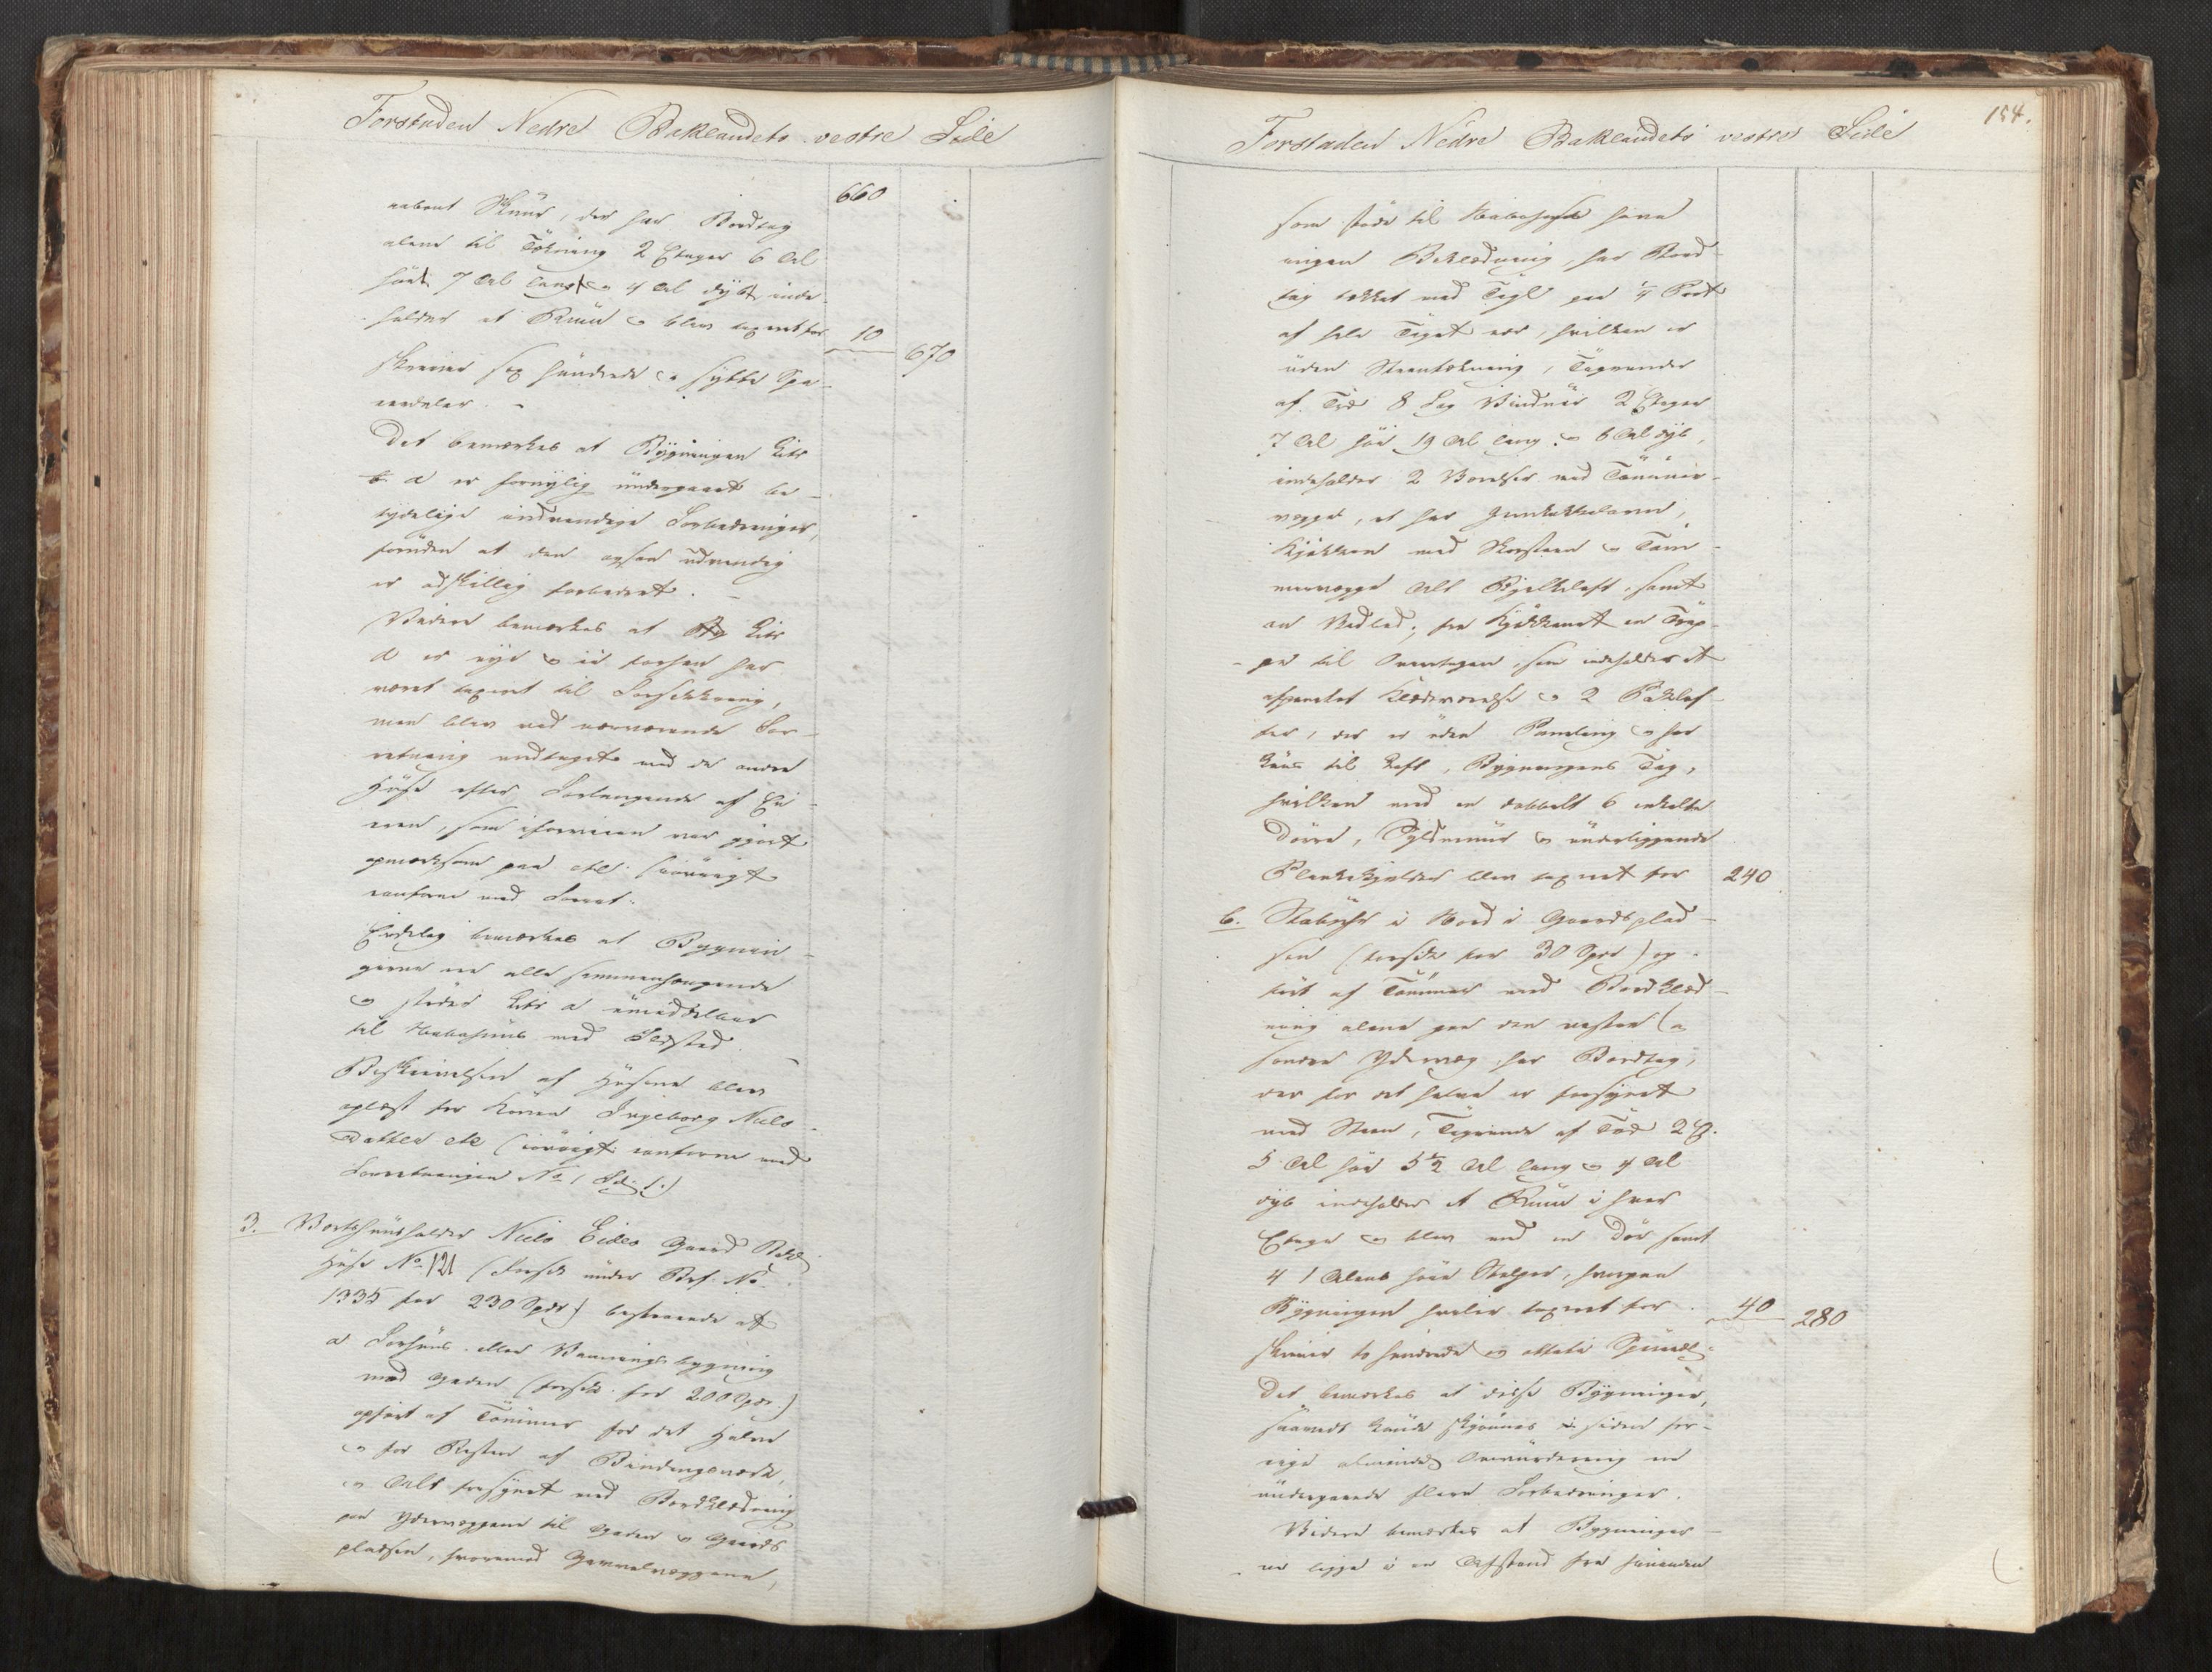 Forstaden Nedre Baklandets vestre Side
660
aabent Skuur, der har Bordtag
alene til Tækning 2 Etager 6 Al
høit 7 Al langt og 4 Al dybt, inde-
holder et Ruum og blev taxeret for 10
670
skriver sex hundrede og sytti Spe-
ciedaler. -
Det bemærkes at Bygningen Litr
a er fornylig undergaaet be-
tydelige indvendige Forbedringer,
foruden at den ogsaa udvendig
er adskillig forbedret. -
Videre bemærkes at Litr
d er nye og ei forhen har
været taxeret til Forsikkring,
men blev ved nærværende For-
retning medtaget med de andre
Huse efter Forlangende af Ei-
eren, som iforveien var gjort
opmærksom paa etc. (iøvrigt
conform med Forret:
Endelig bemærkes at Bygnin-
gerne ere alle sammenhængende
og støder Litr a umiddelbar
til Nabohuus med Ildsted.
Beskrivelsen af Husene blev
oplæst for Konen Ingeborg Niels-
datter etc (iøvrigt conform med
Forretningen No 1 Fol: 1.)
3. Vertshuusholder Niels Eides Gaard Bakl:
Huse No 121 (Forsik under Brf. No
1335 for 230 Spdr) bestaaende af
a Forhuus eller Vaaningsbygning
mod Gaden (forsik. for 200 Spdr.)
opført af Tømmer for det Halve
og for Resten af Bindingsværk,
og Alt forsynet med Bordklædning
paa Ydervæggene til Gaden og Gaards-
pladsen, hvoremod Gavelvæggene,
184.
Forstaden Nedre Baklandets vestre Side
som støde til Nabohuse have
ingen Beklædning, har Bord-
tag tækket med Tegl paa 1/4 Part
af hele Taget nær, hvilken er
uden Steentækning, Tagrender
af Træ 8 Fag Vinduer 2 Etager
7 Al høi 19 Al lang og 6 Al dyb,
indeholder 2 Værelser med Tømmer-
vægge, et har Jernkakkelovn,
Kjøkken med Skorsteen og Tøm-
mervægge Alt Bjelkeloft, samt
en Vedbod; fra Kjøkkenet en Trap-
pe til Overetagen, som indeholder et
afpanelet Klædeværelse og 2 Paklof-
ter, der er uden Paneling og har
Luus til Loft, Bygningens Tag,
hvilken med en dobbelt 6 enkelte
Dørre, Syldmuur og underliggende
Plankekjelder blev taxeret for 240
b. Stabuhr i Nord i Gaardsplad-
sen (forsik for 30 Spdr) op-
ført af Tømmer med Bordklæd-
ning alene paa den vestre og
søndre Ydervæg, har Bordtag,
der for det halve er forsynet
med Steen, Tagrende af Træ 2 E.
5 Al høi 5 1/2 Al lang og 4 Al
dyb indeholder et Ruum i hver
Etage og blev med en Dør samt
4 1 Alens høie Stolper, hvorpaa
Bygningen hviler taxeret for 40
280
skriver to hundrede og otteti Speciedl:
Det bemærkes at disse Bygninger,
saavidt kunde skjønnes siden for-
rige almindel Omvurdering ere
undergaaede flere Forbedringer.
Videre bemærkes at Bygninger-
ne ligge i en Afstand fra hinanden